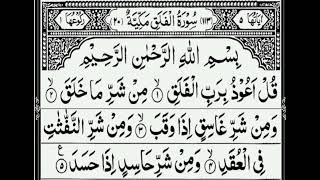 اٰیَاتُهَا ٥ (١١٣) سُوْرَةُ الْفَلَقِ مَكِّیَّةٌ (٢٠) رُكُوْعُهَا ١
بِسْمِ اللّٰهِ الرَّحْمٰنِ الرَّحِیْمِ
قُلْ اَعُوْذُ بِرَبِّ الْفَلَقِ ۙ﴿١﴾ مِنْ شَرِّ مَا خَلَقَ ۙ﴿٢﴾
وَمِنْ شَرِّ غَاسِقٍ اِذَا وَقَبَ ۙ﴿٣﴾ وَمِنْ شَرِّ النَّفّٰثٰتِ
فِی الْعُقَدِ ۙ﴿٤﴾ وَمِنْ شَرِّ حَاسِدٍ اِذَا حَسَدَ ﴿٥﴾ ع